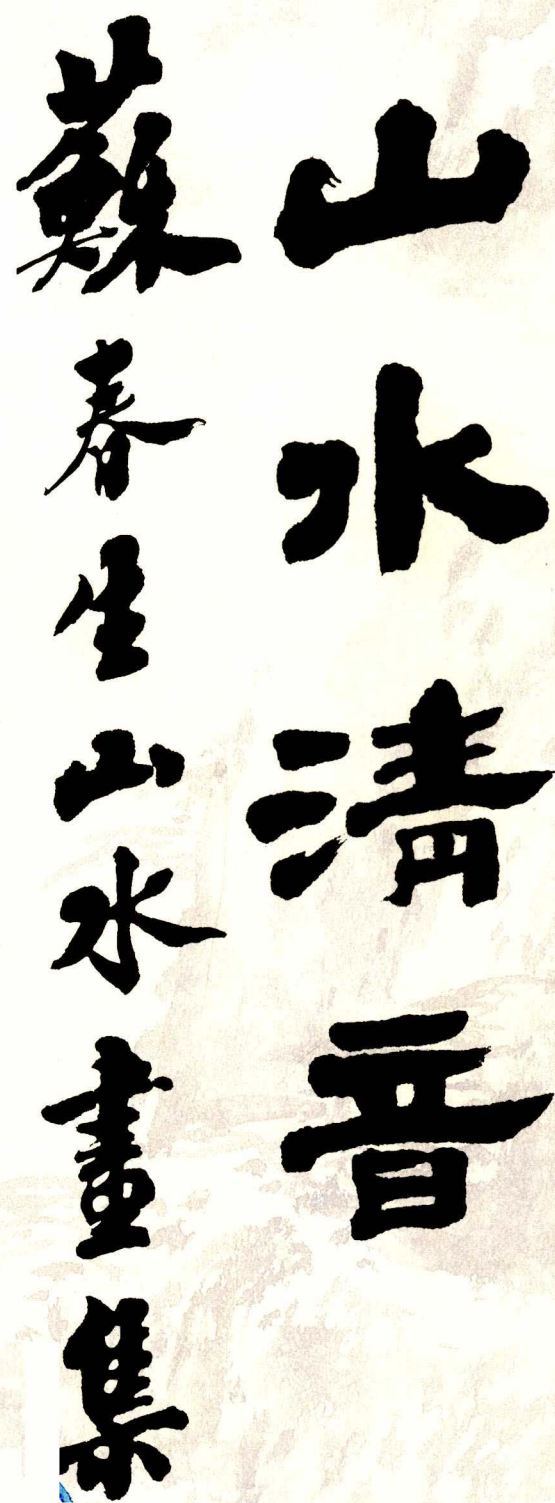 山水清音
蘇春生山水畫集